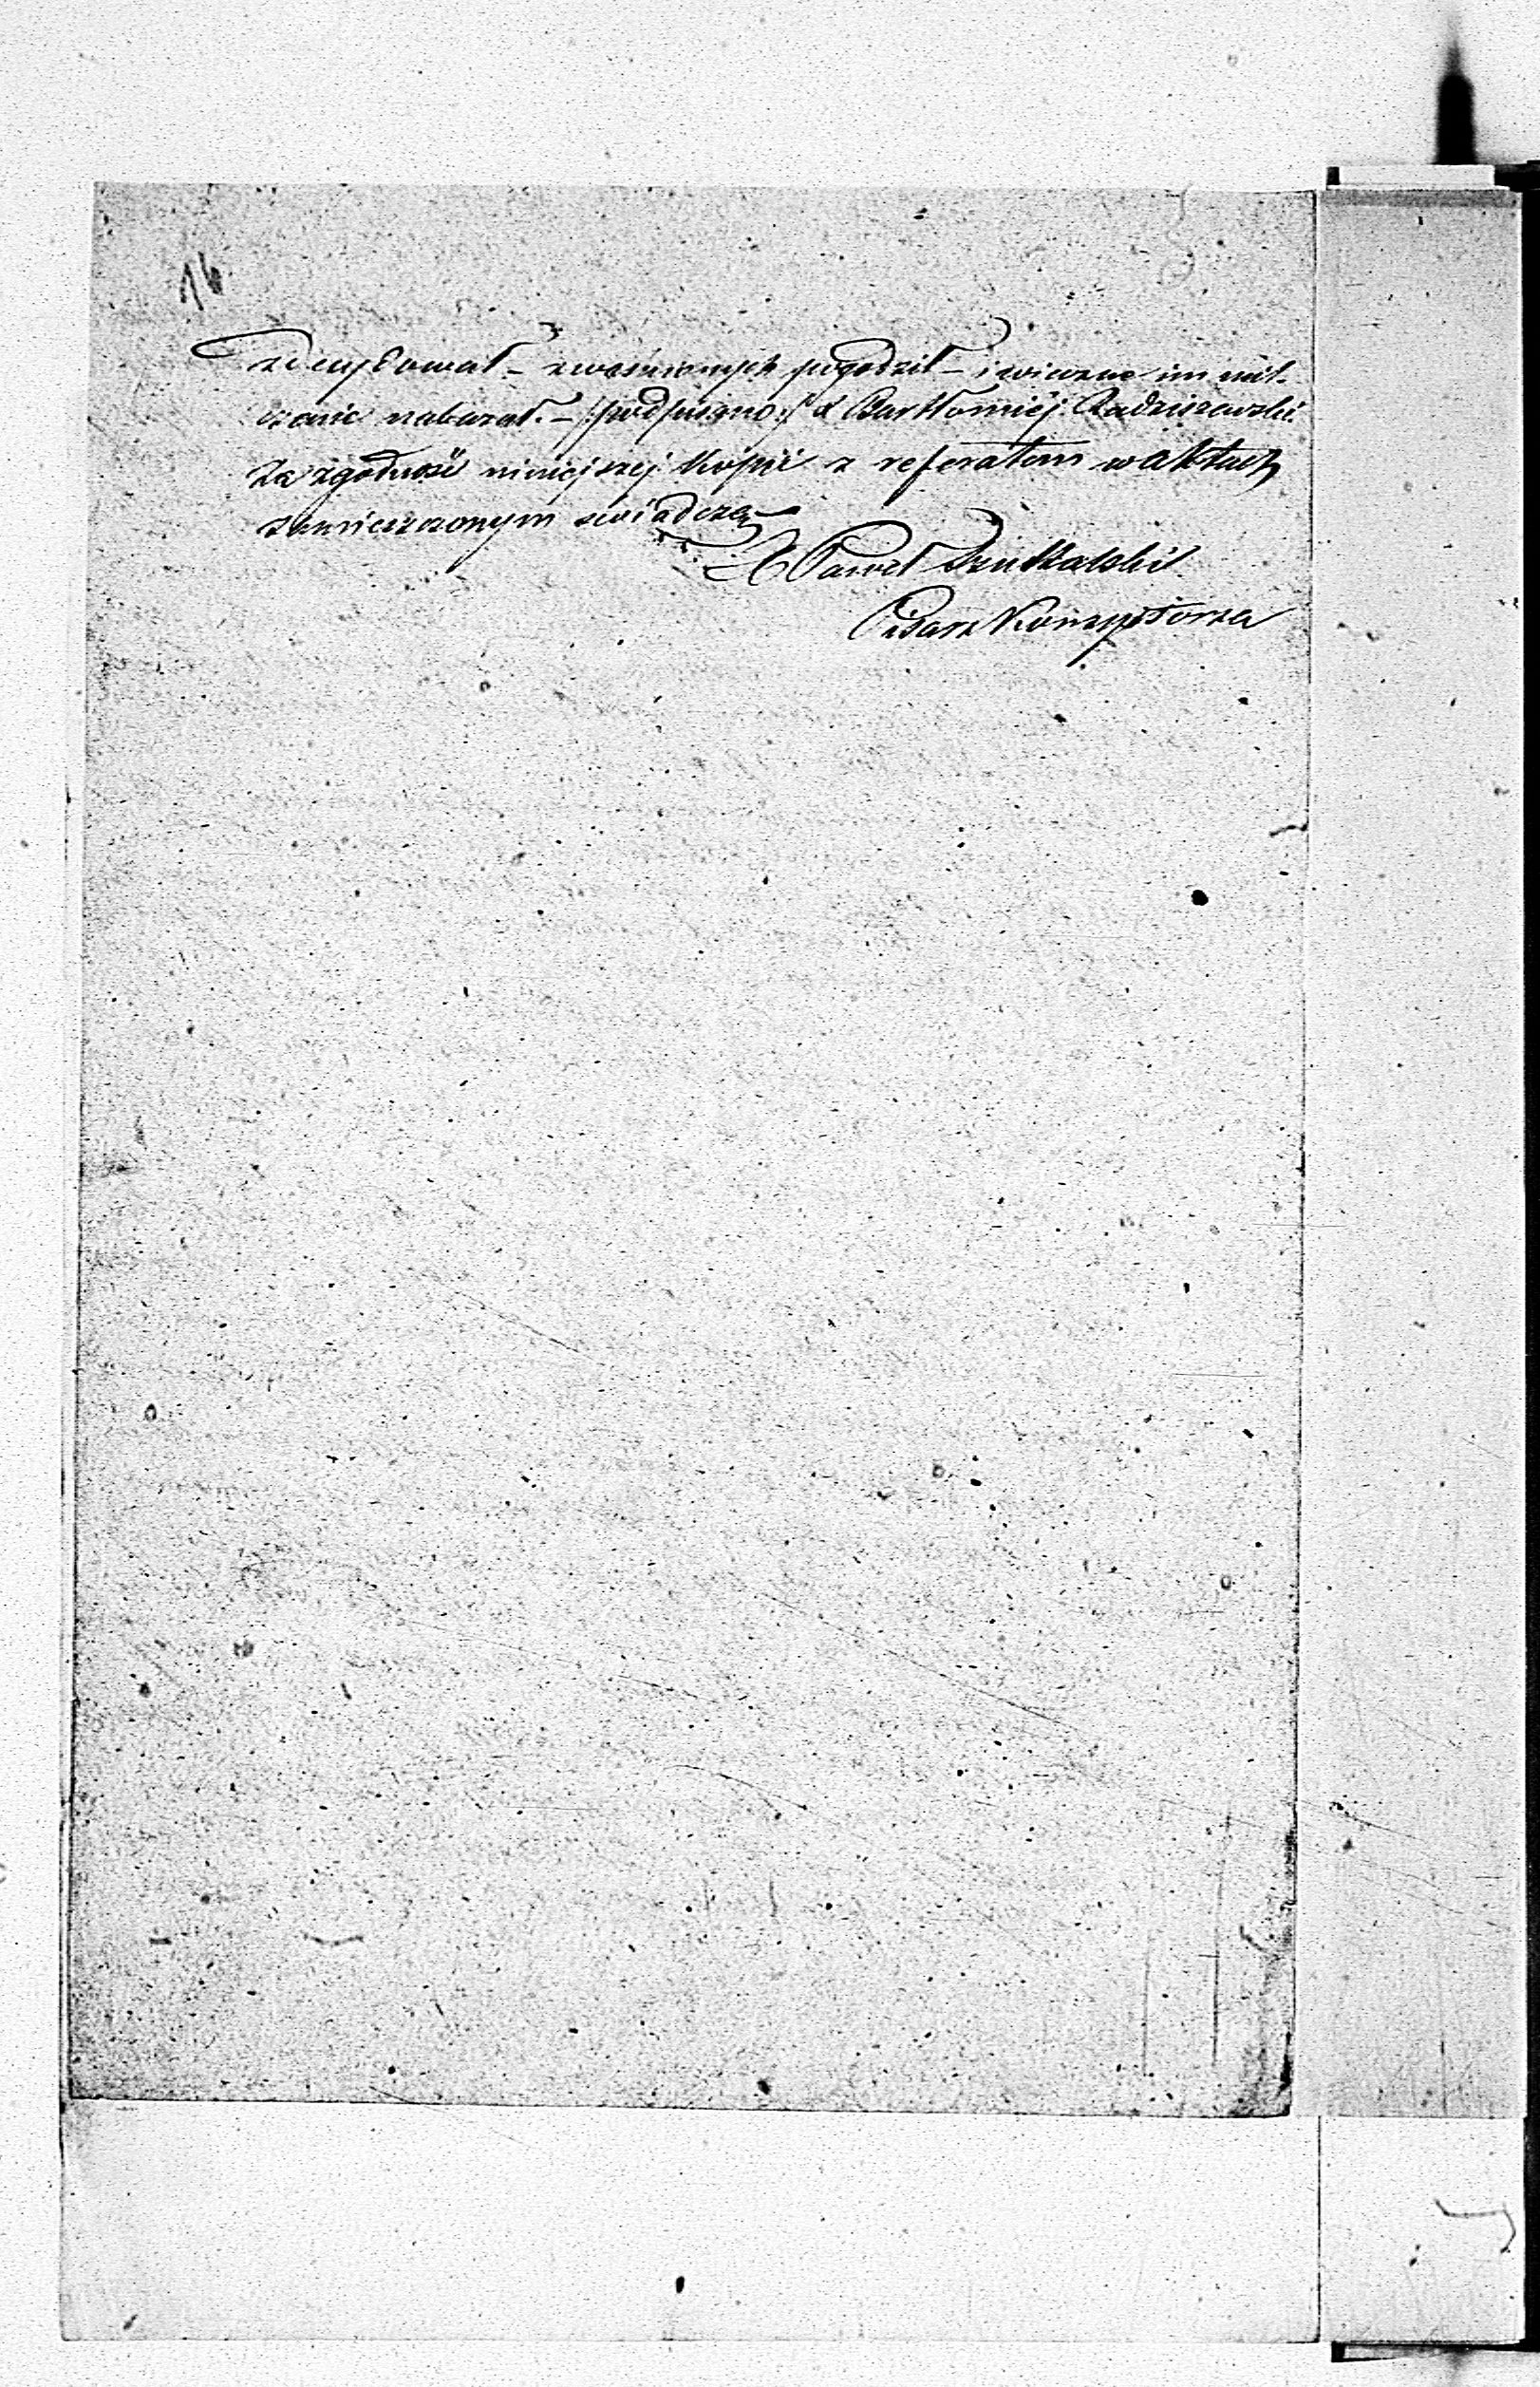 14
zdecydował – zwaśnionych pogodził – i wieczne im mil-
czenie nakazał. – /:podpisano:/ X Bartłomiej Radziszewski.
Za zgodność niniejszej Kopii z referatem w aktach
zamieszczonym świadczę
X Paweł Szutkalski
Pisarz Konsystorza